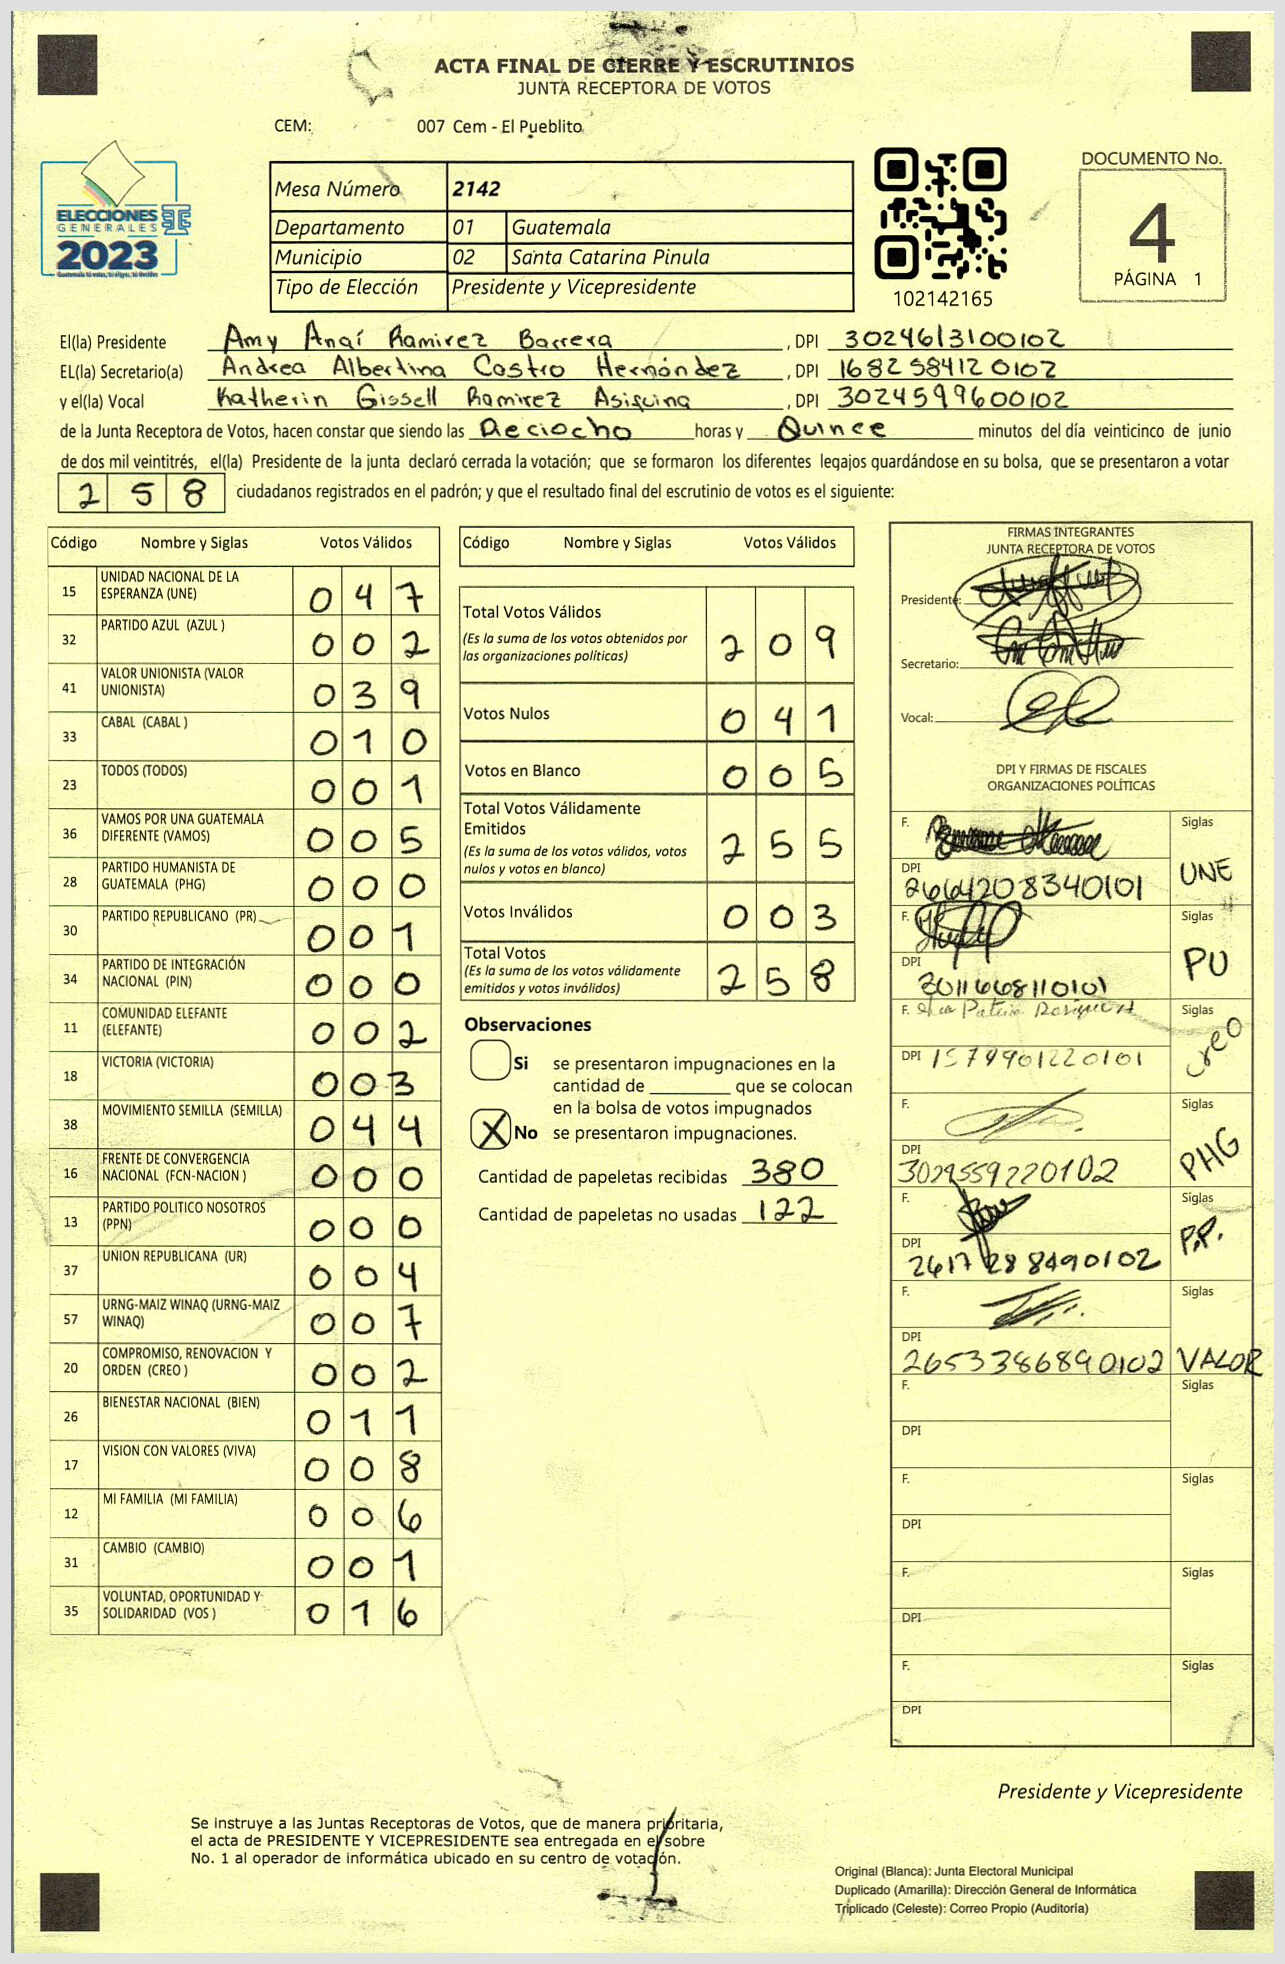 ACTA FINAL DE CIERRE Y ESCRUTINIOS
JUNTA RECEPTORA DE VOTOS
CEM: 007 Cem - El Pueblito
ELECCIONES
GENERALES
2023
Mesa Número 2142
Departamento 01 Guatemala
Municipio 02 Santa Catarina Pinula
Tipo de Elección Presidente y Vicepresidente
102142165
DOCUMENTO No.
4
PÁGINA 1
El(la) Presidente Amy Anaí Ramirez Barrera, DPI 3024613100102
EL(la) Secretario(a) Andrea Albertina Castro Hernández, DPI 1682584120102
y el(la) Vocal Katherin Gissell Ramirez Asiquina, DPI 3024599600102
de la Junta Receptora de Votos, hacen constar que siendo las Deciocho horas y Quince minutos del día veinticinco de junio
de dos mil veintitrés, el(la) Presidente de la junta declaró cerrada la votación; que se formaron los diferentes legajos guardándose en su bolsa, que se presentaron a votar
258 ciudadanos registrados en el padrón; y que el resultado final del escrutinio de votos es el siguiente:
Código Nombre y Siglas Votos Válidos
15 UNIDAD NACIONAL DE LA ESPERANZA (UNE) 047
32 PARTIDO AZUL (AZUL ) 002
41 VALOR UNIONISTA (VALOR UNIONISTA) 039
33 CABAL (CABAL ) 010
23 TODOS (TODOS) 001
36 VAMOS POR UNA GUATEMALA DIFERENTE (VAMOS) 005
28 PARTIDO HUMANISTA DE GUATEMALA (PHG) 000
30 PARTIDO REPUBLICANO (PR) 001
34 PARTIDO DE INTEGRACIÓN NACIONAL (PIN) 000
11 COMUNIDAD ELEFANTE (ELEFANTE) 002
18 VICTORIA (VICTORIA) 003
38 MOVIMIENTO SEMILLA (SEMILLA) 044
16 FRENTE DE CONVERGENCIA NACIONAL (FCN-NACION ) 000
13 PARTIDO POLITICO NOSOTROS (PPN) 000
37 UNION REPUBLICANA (UR) 004
57 URNG-MAIZ WINAQ (URNG-MAIZ WINAQ) 007
20 COMPROMISO, RENOVACION Y ORDEN (CREO ) 002
26 BIENESTAR NACIONAL (BIEN) 011
17 VISION CON VALORES (VIVA) 008
12 MI FAMILIA (MI FAMILIA) 006
31 CAMBIO (CAMBIO) 001
35 VOLUNTAD, OPORTUNIDAD Y SOLIDARIDAD (VOS ) 016
Código Nombre y Siglas Votos Válidos
Total Votos Válidos 209
(Es la suma de los votos obtenidos por
las organizaciones políticas)
Votos Nulos 041
Votos en Blanco 005
Total Votos Válidamente
Emitidos 255
(Es la suma de los votos válidos, votos
nulos y votos en blanco)
Votos Inválidos 003
Total Votos 258
(Es la suma de los votos válidamente
emitidos y votos inválidos)
Observaciones
Si se presentaron impugnaciones en la
cantidad de ________ que se colocan
en la bolsa de votos impugnados
X No se presentaron impugnaciones.
Cantidad de papeletas recibidas 380
Cantidad de papeletas no usadas 122
FIRMAS INTEGRANTES
JUNTA RECEPTORA DE VOTOS
Presidente:
Secretario:
Vocal:
DPI Y FIRMAS DE FISCALES
ORGANIZACIONES POLÍTICAS
F. Siglas
DPI 2664208340101 UNE
F. Siglas
DPI 3011668110101 PU
F. Siglas
DPI 1579901220101 Creo
F. Siglas
DPI 3029559220102 PHG
F. Siglas
DPI 2617288490102 P.P.
F. Siglas
DPI 2653386890102 VALOR
F. Siglas
DPI
F. Siglas
DPI
F. Siglas
DPI
F. Siglas
DPI
Presidente y Vicepresidente
Se instruye a las Juntas Receptoras de Votos, que de manera prioritaria,
el acta de PRESIDENTE Y VICEPRESIDENTE sea entregada en el sobre
No. 1 al operador de informática ubicado en su centro de votación.
Original (Blanca): Junta Electoral Municipal
Duplicado (Amarilla): Dirección General de Informática
Triplicado (Celeste): Correo Propio (Auditoría)